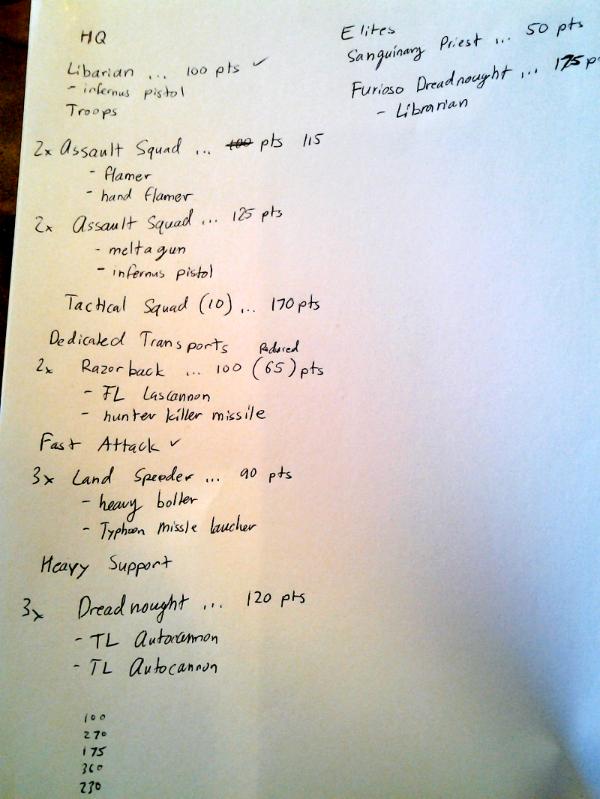 HQ
Libarian ... 100 pts ✓
- infernus pistol
Troops
2x Assault Squad ... 100 pts 115
- flamer
- hand flamer
2x Assault Squad ... 125 pts
- meltagun
- infernus pistol
Tactical Squad (10) ... 170 pts
Dedicated Transports
2x Razorback ... 100 (65) pts
- TL Lascannon
- hunter killer missile
Fast Attack ✓
3x Land Speeder ... 90 pts
- heavy bolter
- Typhoon missle laucher
Heavy Support
3x Dreadnought ... 120 pts
- TL Autocannon
- TL Autocannon
100
270
175
360
230
Elites
Sanguinary Priest ... 50 pts
Furioso Dreadnought ... 175 p
- Librarian